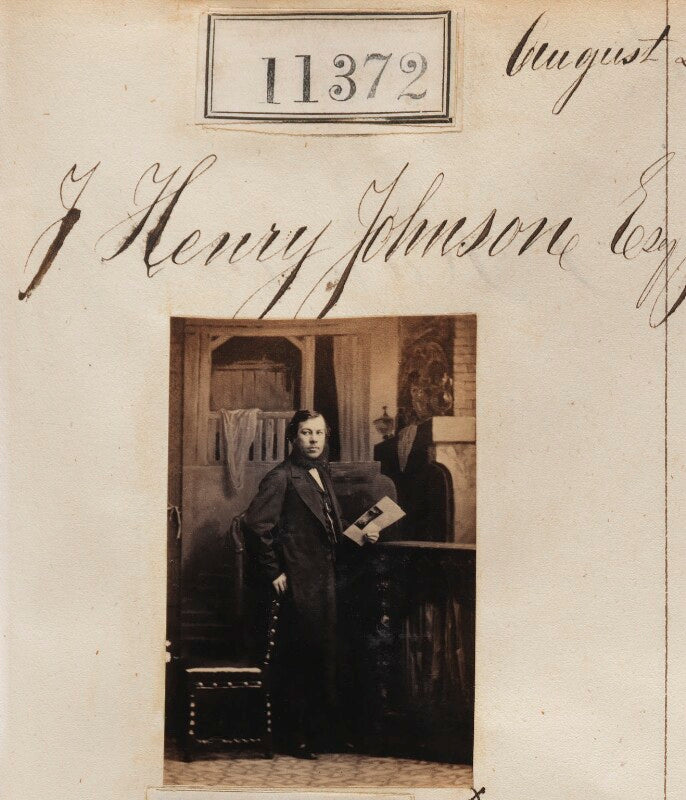 11372
August
J Henry Johnson Esq